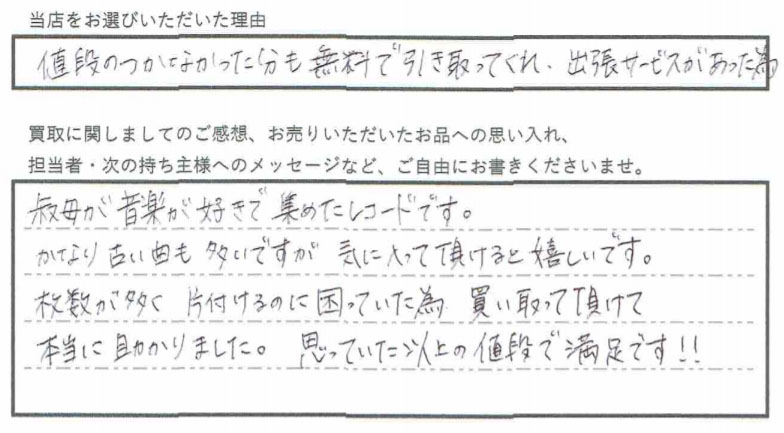 当店をお選びいただいた理由
値段のつかなかった分も無料で引き取ってくれ、出張サービスがあった為
買取に関しましてのご感想、お売りいただいたお品への思い入れ、
担当者・次の持ち主様へのメッセージなど、ご自由にお書きくださいませ。
叔母が音楽が好きで集めたレコードです。
かなり古い曲も多いですが気に入って頂けると嬉しいです。
枚数が多く片付けるのに困っていた為買い取って頂けて
本当に助かりました。思っていた以上の値段で満足です!!